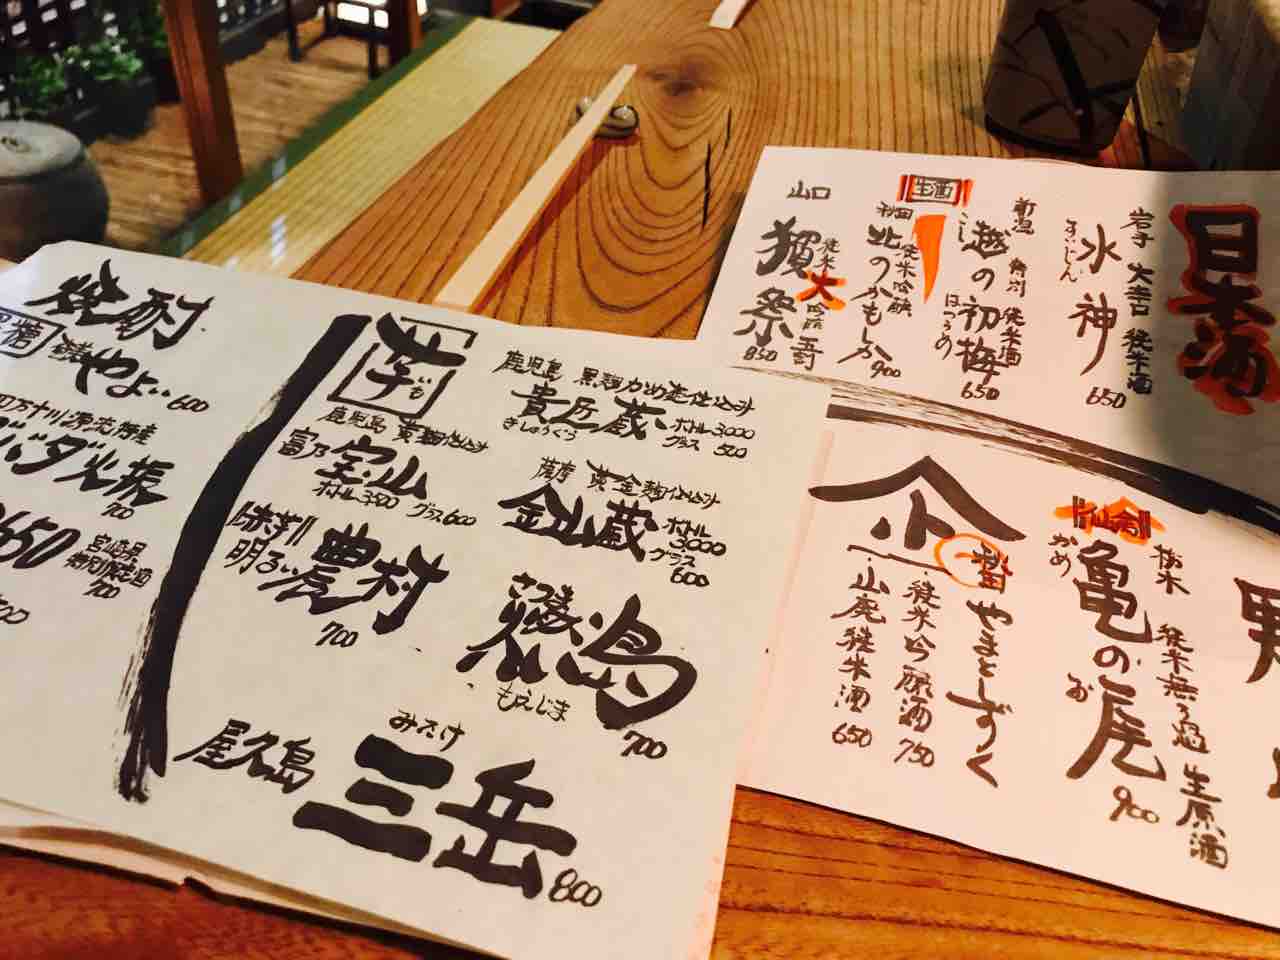 日本酒
岩手 大辛口 純米酒
水神
すいじん
650
新潟 特別純米酒
越の初梅
こし
はつうめ
650
生酒
秋田 純米吟醸
北のかもしか
900
山口
純米大吟醸
獺祭
850
仙禽
栃木 純米無ろ過 生原酒
亀の尾
かめ
お
900
秋田
やまとしずく
純米吟醸酒 750
山廃純米酒 650
焼酎
黒糖
やよい 600
四万十川源流特産
ダバダ火振
700
宮崎県
特別限定酒
700
芋
いも
鹿児島 黄麹仕込み
富乃宝山
ボトル3500 グラス600
赤芋
明るい農村
700
屋久島
みたけ
三岳
800
鹿児島 黒麹かめ壷仕込み
貴匠蔵
きしょうぐら
ボトル3000
グラス500
薩摩 黄金麹仕込み
金山蔵
ボトル
3000
グラス
600
もえじま
700